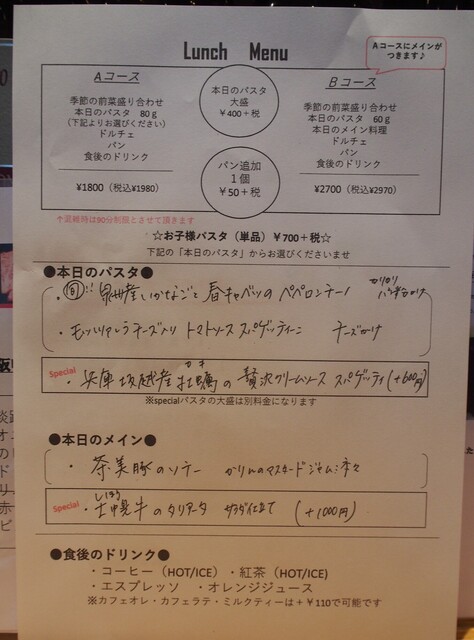 Lunch Menu
Aコースにメインが
つきます♪
Aコース
季節の前菜盛り合わせ
本日のパスタ 80g
(下記よりお選びください)
ドルチェ
パン
食後のドリンク
¥1800(税込¥1980)
本日のパスタ
大盛
¥400+税
パン追加
1個
¥50+税
Bコース
季節の前菜盛り合わせ
本日のパスタ 60g
本日のメイン料理
ドルチェ
パン
食後のドリンク
¥2700(税込¥2970)
↑混雑時は90分制限とさせて頂きます
☆お子様パスタ(単品)¥700+税☆
下記の「本日のパスタ」からお選びくださいませ
●本日のパスタ●
・旬!! 泉州産いかなごと春キャベツのペペロンチーノ カリカリパン粉がけ
・モッツァレラチーズ入り トマトソース スパゲッティーニ チーズがけ
Special ・兵庫坂越産牡蠣の贅沢クリームソース スパゲッティ(+600円)
カキ
※specialパスタの大盛は別料金になります
●本日のメイン●
・茶美豚のソテー かりんのマスタードジャム添え
Special ・士幌牛のタリアータ サラダ仕立て (+1000円)
しほろ
●食後のドリンク●
・コーヒー(HOT/ICE)・紅茶(HOT/ICE)
・エスプレッソ ・オレンジジュース
※カフェオレ・カフェラテ・ミルクティーは+¥110で可能です